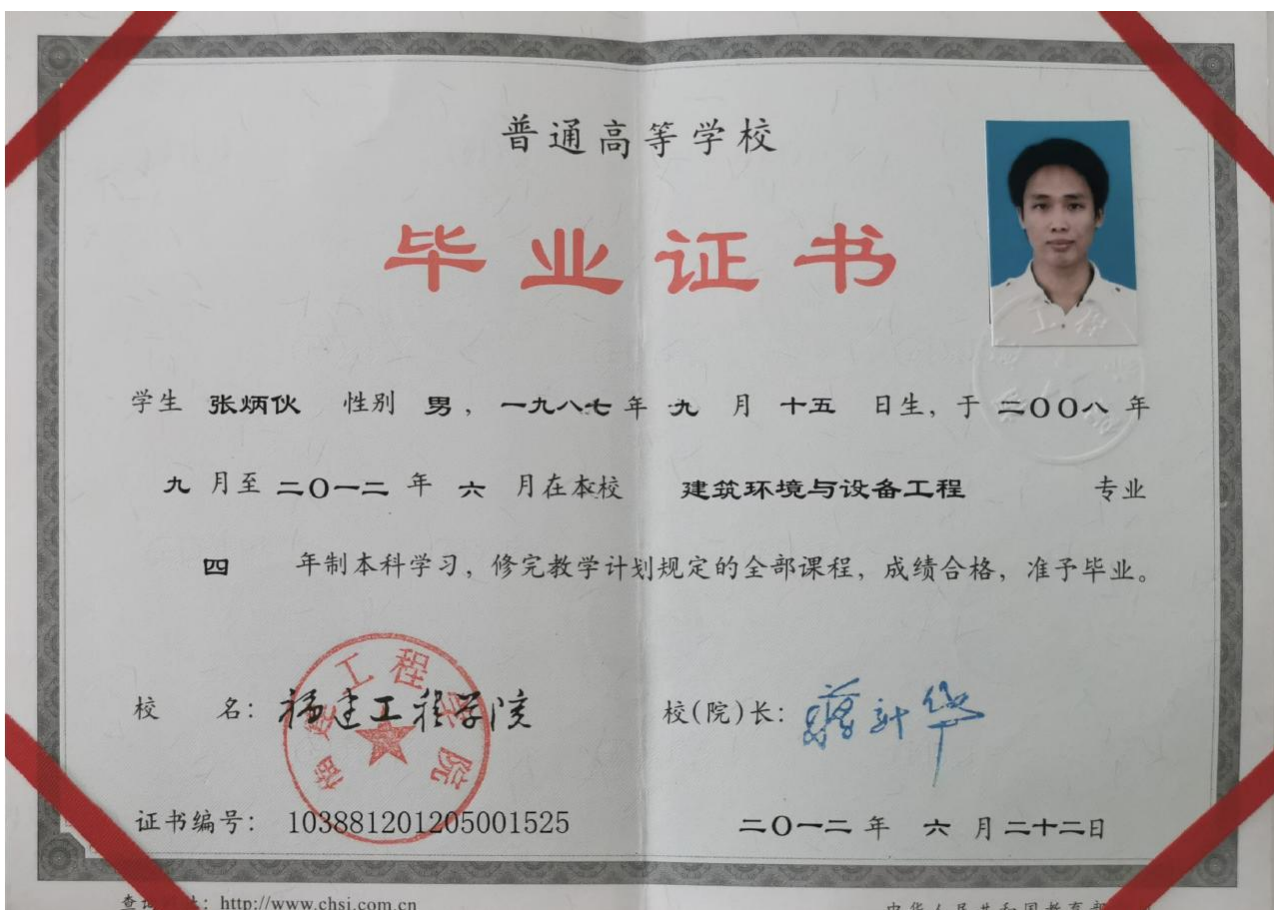 普通高等学校
毕业证书
学生 张炳伙 性别 男，一九八七年 九 月 十五 日生，于 二〇〇八 年
九 月至 二〇一二 年 六 月在本校 建筑环境与设备工程 专业
四 年制本科学习，修完教学计划规定的全部课程，成绩合格，准予毕业。
校 名：福建工程学院
福建工程学院
校(院)长：蒋新华
证书编号：103881201205001525
二〇一二 年 六 月二十二日
http://www.chsi.com.cn
中华人民共和国教育部